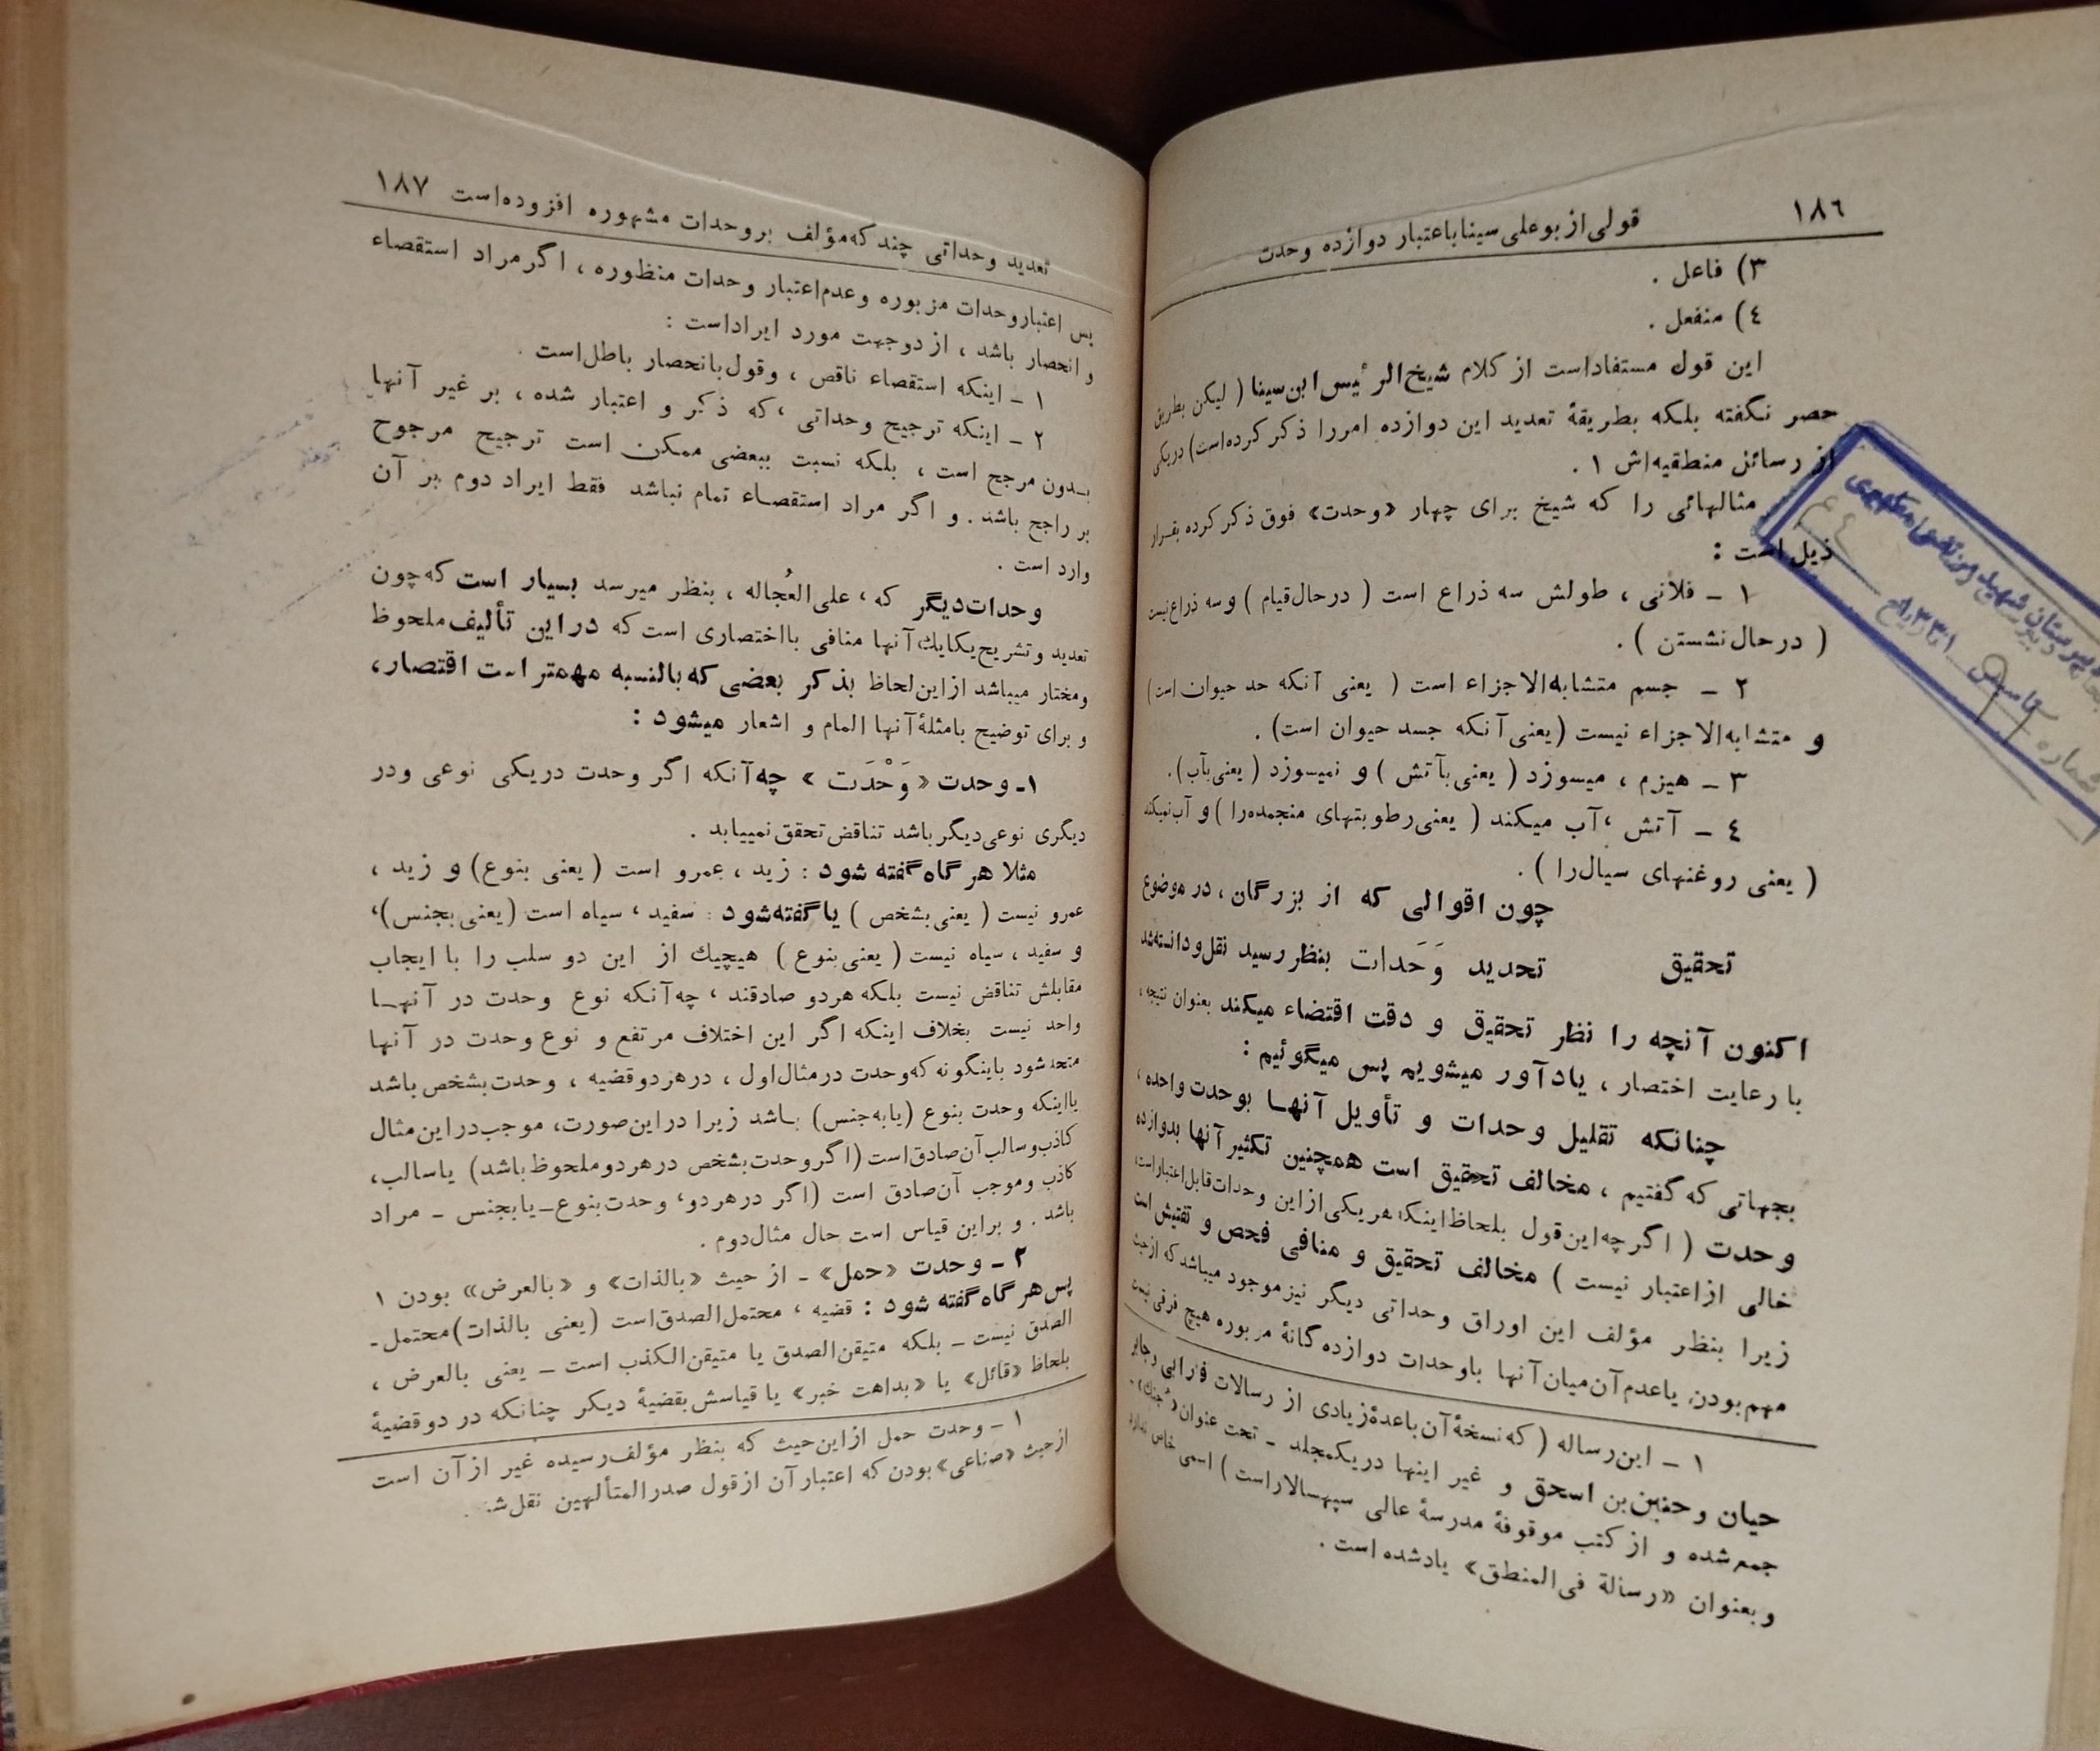 ١٨٦
قولی از بوعلی سینا باعتبار دوازده وحدت
٣) فاعل .
٤) منفعل .
این قول مستفاد است از کلام شیخ‌الرئیس ابن‌سینا ( لیکن بطریق
حصر نگفته بلکه بطریقهٔ تعدید این دوازده امر را ذکر کرده‌است) دریکی
از رسائل منطقیه‌اش ١ .
مثالهائی را که شیخ برای چهار «وحدت» فوق ذکر کرده بقرار
ذیل است :
١ - فلانی ، طولش سه ذراع است ( در حال قیام ) و سه ذراع نیست
( در حال نشستن ) .
٢ - جسم متشابه‌الاجزاء است ( یعنی آنکه حد حیوان است )
و متشابه‌الاجزاء نیست (یعنی آنکه جسد حیوان است) .
٣ - هیزم ، میسوزد ( یعنی بآتش ) و نمیسوزد ( یعنی بآب ) .
٤ - آتش ، آب میکند ( یعنی رطوبتهای منجمده را ) و آب نمیکند
( یعنی روغنهای سیال را ) .
چون اقوالی که از بزرگان ، در موضوع
تحقیق تحدید وَحَدات بنظر رسید نقل و دانسته شد
اکنون آنچه را نظر تحقیق و دقت اقتضاء میکند بعنوان نتیجه ،
با رعایت اختصار ، یادآور میشویم پس میگوئیم :
چنانکه تقلیل وحدات و تأویل آنها بوحدت واحده ،
بجهاتی که گفتیم ، مخالف تحقیق است همچنین تکثیر آنها بدوازده
وحدت ( اگرچه این قول بلحاظ اینکه هر یکی از این وحدات قابل اعتبار است،
خالی از اعتبار نیست ) مخالف تحقیق و منافی فحص و تفتیش است
زیرا بنظر مؤلف این اوراق وحداتی دیگر نیز موجود میباشد که از حیث
مهم بودن یا عدم آن میان آنها با وحدات دوازده گانهٔ مزبوره هیچ فرقی نیست
١ - این رساله ( که نسخهٔ آن با عدهٔ زیادی از رسالات فارابی و جابر
حیان و حنین بن اسحق و غیر اینها در یکمجلد - تحت عنوان «جنگ» -
جمع شده و از کتب موقوفهٔ مدرسهٔ عالی سپهسالار است ) اسمی خاص ندارد
و بعنوان «رسالة فی‌المنطق» یادشده است .
دبیرستان شهید مرتضی مطهری
شماره
تعدید وحداتی چند که مؤلف بر وحدات مشهوره افزوده‌است ١٨٧
پس اعتبار وحدات مزبوره و عدم اعتبار وحدات منظوره ، اگر مراد استقصاء
و انحصار باشد ، از دو جهت مورد ایراد است :
١ - اینکه استقصاء ناقص ، و قول بانحصار باطل است .
٢ - اینکه ترجیح وحداتی ، که ذکر و اعتبار شده ، بر غیر آنها
بدون مرجح است ، بلکه نسبت ببعضی ممکن است ترجیح مرجوح
بر راجح باشد . و اگر مراد استقصاء تمام نباشد فقط ایراد دوم بر آن
وارد است .
وحدات دیگر که ، علی‌العُجاله ، بنظر میرسد بسیار است که چون
تعدید و تشریح یکایک آنها منافی با اختصاری است که در این تألیف ملحوظ
و مختار میباشد از این لحاظ بذکر بعضی که بالنسبه مهمتر است اقتصار،
و برای توضیح بامثلهٔ آنها المام و اشعار میشود :
١- وحدت « وَحْدَت » چه آنکه اگر وحدت در یکی نوعی و در
دیگری نوعی دیگر باشد تناقض تحقق نمییابد .
مثلا هر گاه گفته شود : زید ، عمرو است ( یعنی بنوع) و زید ،
عمرو نیست ( یعنی بشخص ) یا گفته شود : سفید ، سیاه است (یعنی بجنس)،
و سفید ، سیاه نیست ( یعنی بنوع ) هیچیک از این دو سلب را با ایجاب
مقابلش تناقض نیست بلکه هر دو صادقند ، چه آنکه نوع وحدت در آنها
واحد نیست بخلاف اینکه اگر این اختلاف مرتفع و نوع وحدت در آنها
متحد شود باینگونه که وحدت در مثال اول ، در هر دو قضیه ، وحدت بشخص باشد
یا اینکه وحدت بنوع (یا به جنس) باشد زیرا در این صورت، موجب در این مثال
کاذب و سالب آن صادق است (اگر وحدت بشخص در هر دو ملحوظ باشد) یا سالب،
کاذب و موجب آن صادق است (اگر در هر دو، وحدت بنوع - یا بجنس - مراد
باشد . و بر این قیاس است حال مثال دوم .
٢ - وحدت «حمل» - از حیث «بالذات» و «بالعرض» بودن ١
پس هر گاه گفته شود : قضیه ، محتمل الصدق است (یعنی بالذات) محتمل-
الصدق نیست - بلکه متیقن‌الصدق یا متیقن‌الکذب است - یعنی بالعرض ،
بلحاظ «قائل» یا «بداهت خبر» یا قیاسش بقضیهٔ دیگر چنانکه در دو قضیهٔ
١ - وحدت حمل از این حیث که بنظر مؤلف رسیده غیر از آن است
از حیث «صناعی» بودن که اعتبار آن از قول صدرالمتألهین نقل شد .